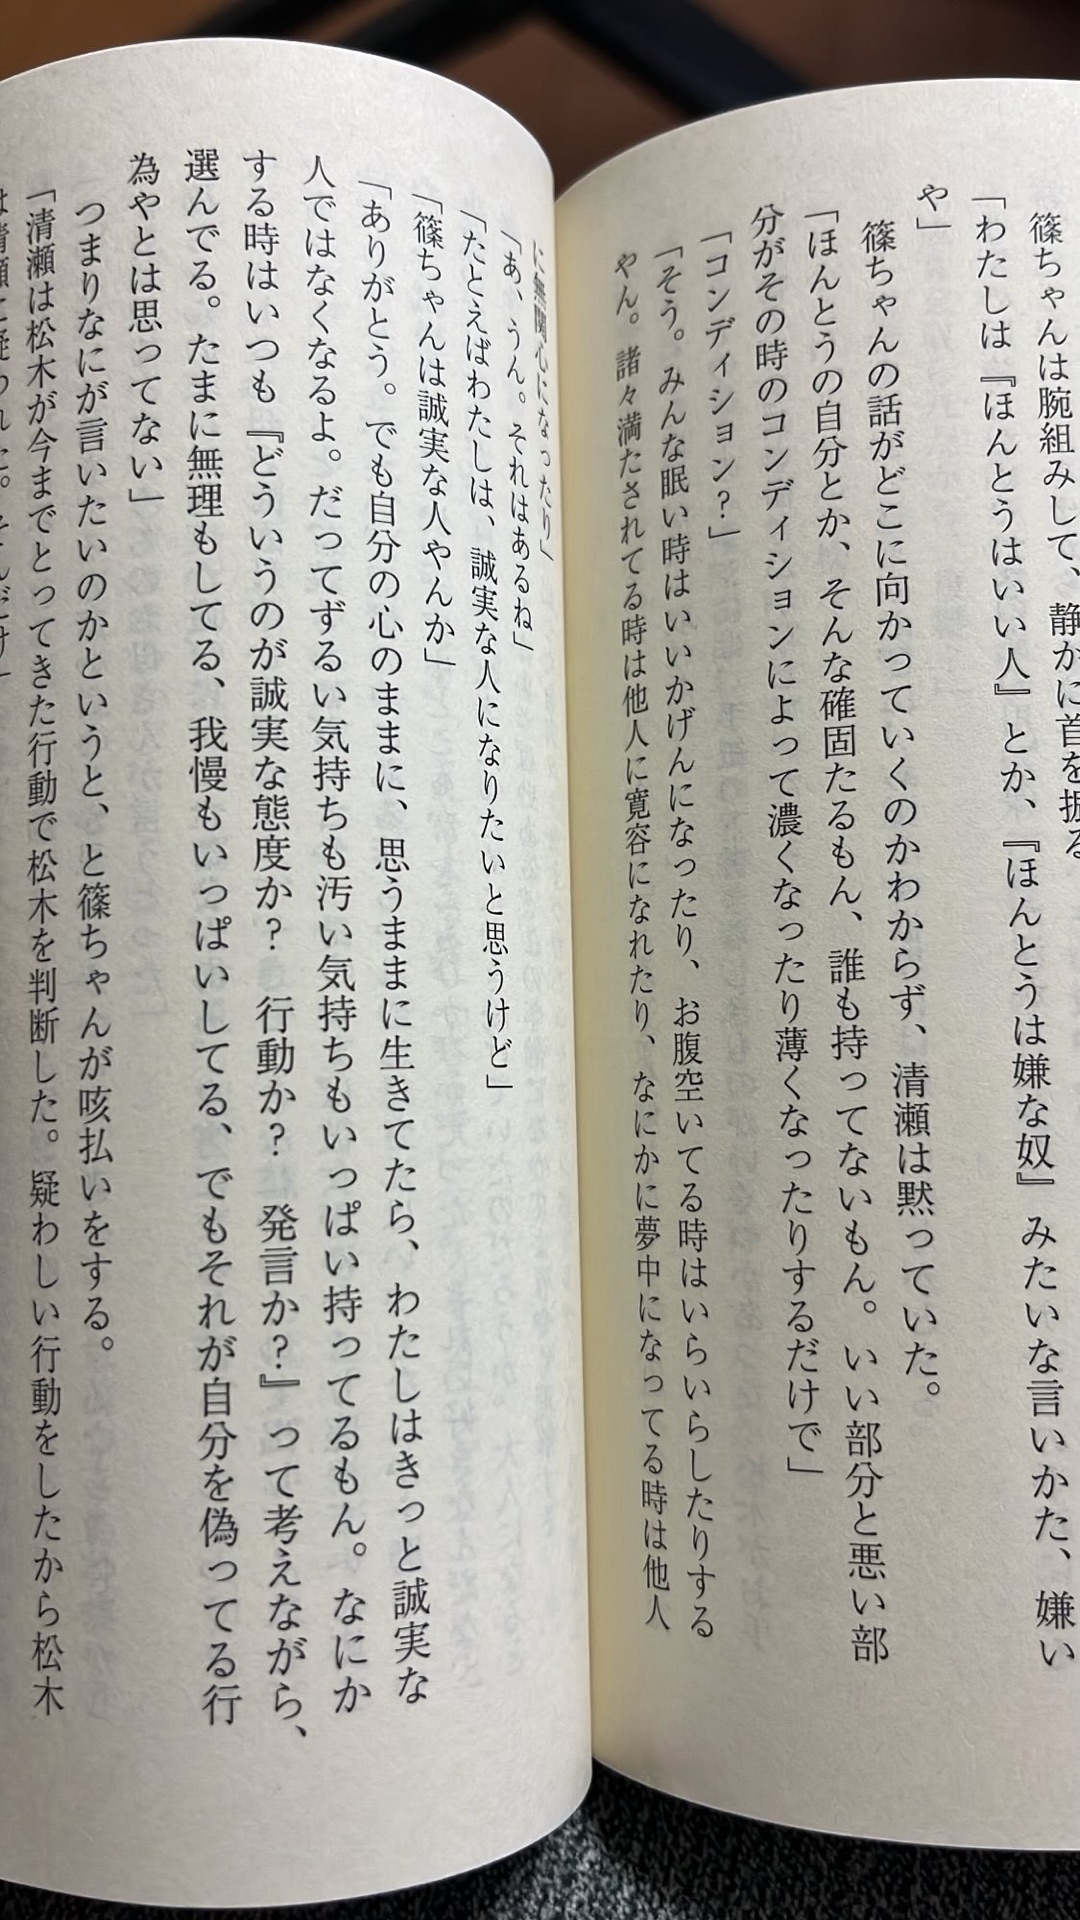 篠ちゃんは腕組みして、静かに首を振る
「わたしは『ほんとうはいい人』とか、『ほんとうは嫌な奴』みたいな言いかた、嫌い
や」
篠ちゃんの話がどこに向かっていくのかわからず、清瀬は黙っていた。
「ほんとうの自分とか、そんな確固たるもん、誰も持ってないもん。いい部分と悪い部
分がその時のコンディションによって濃くなったり薄くなったりするだけで」
「コンディション?」
「そう。みんな眠い時はいいかげんになったり、お腹空いてる時はいらいらしたりする
やん。諸々満たされてる時は他人に寛容になれたり、なにかに夢中になってる時は他人
に無関心になったり」
「あ、うん。それはあるね」
「たとえばわたしは、誠実な人になりたいと思うけど」
「篠ちゃんは誠実な人やんか」
「ありがとう。でも自分の心のままに、思うままに生きてたら、わたしはきっと誠実な
人ではなくなるよ。だってずるい気持ちも汚い気持ちもいっぱい持ってるもん。なにか
する時はいつも『どういうのが誠実な態度か? 行動か? 発言か?』って考えながら、
選んでる。たまに無理もしてる、我慢もいっぱいしてる、でもそれが自分を偽ってる行
為やとは思ってない」
つまりなにが言いたいのかというと、と篠ちゃんが咳払いをする。
「清瀬は松木が今までとってきた行動で松木を判断した。疑わしい行動をしたから松木
は清瀬に疑われた。そんだけ」